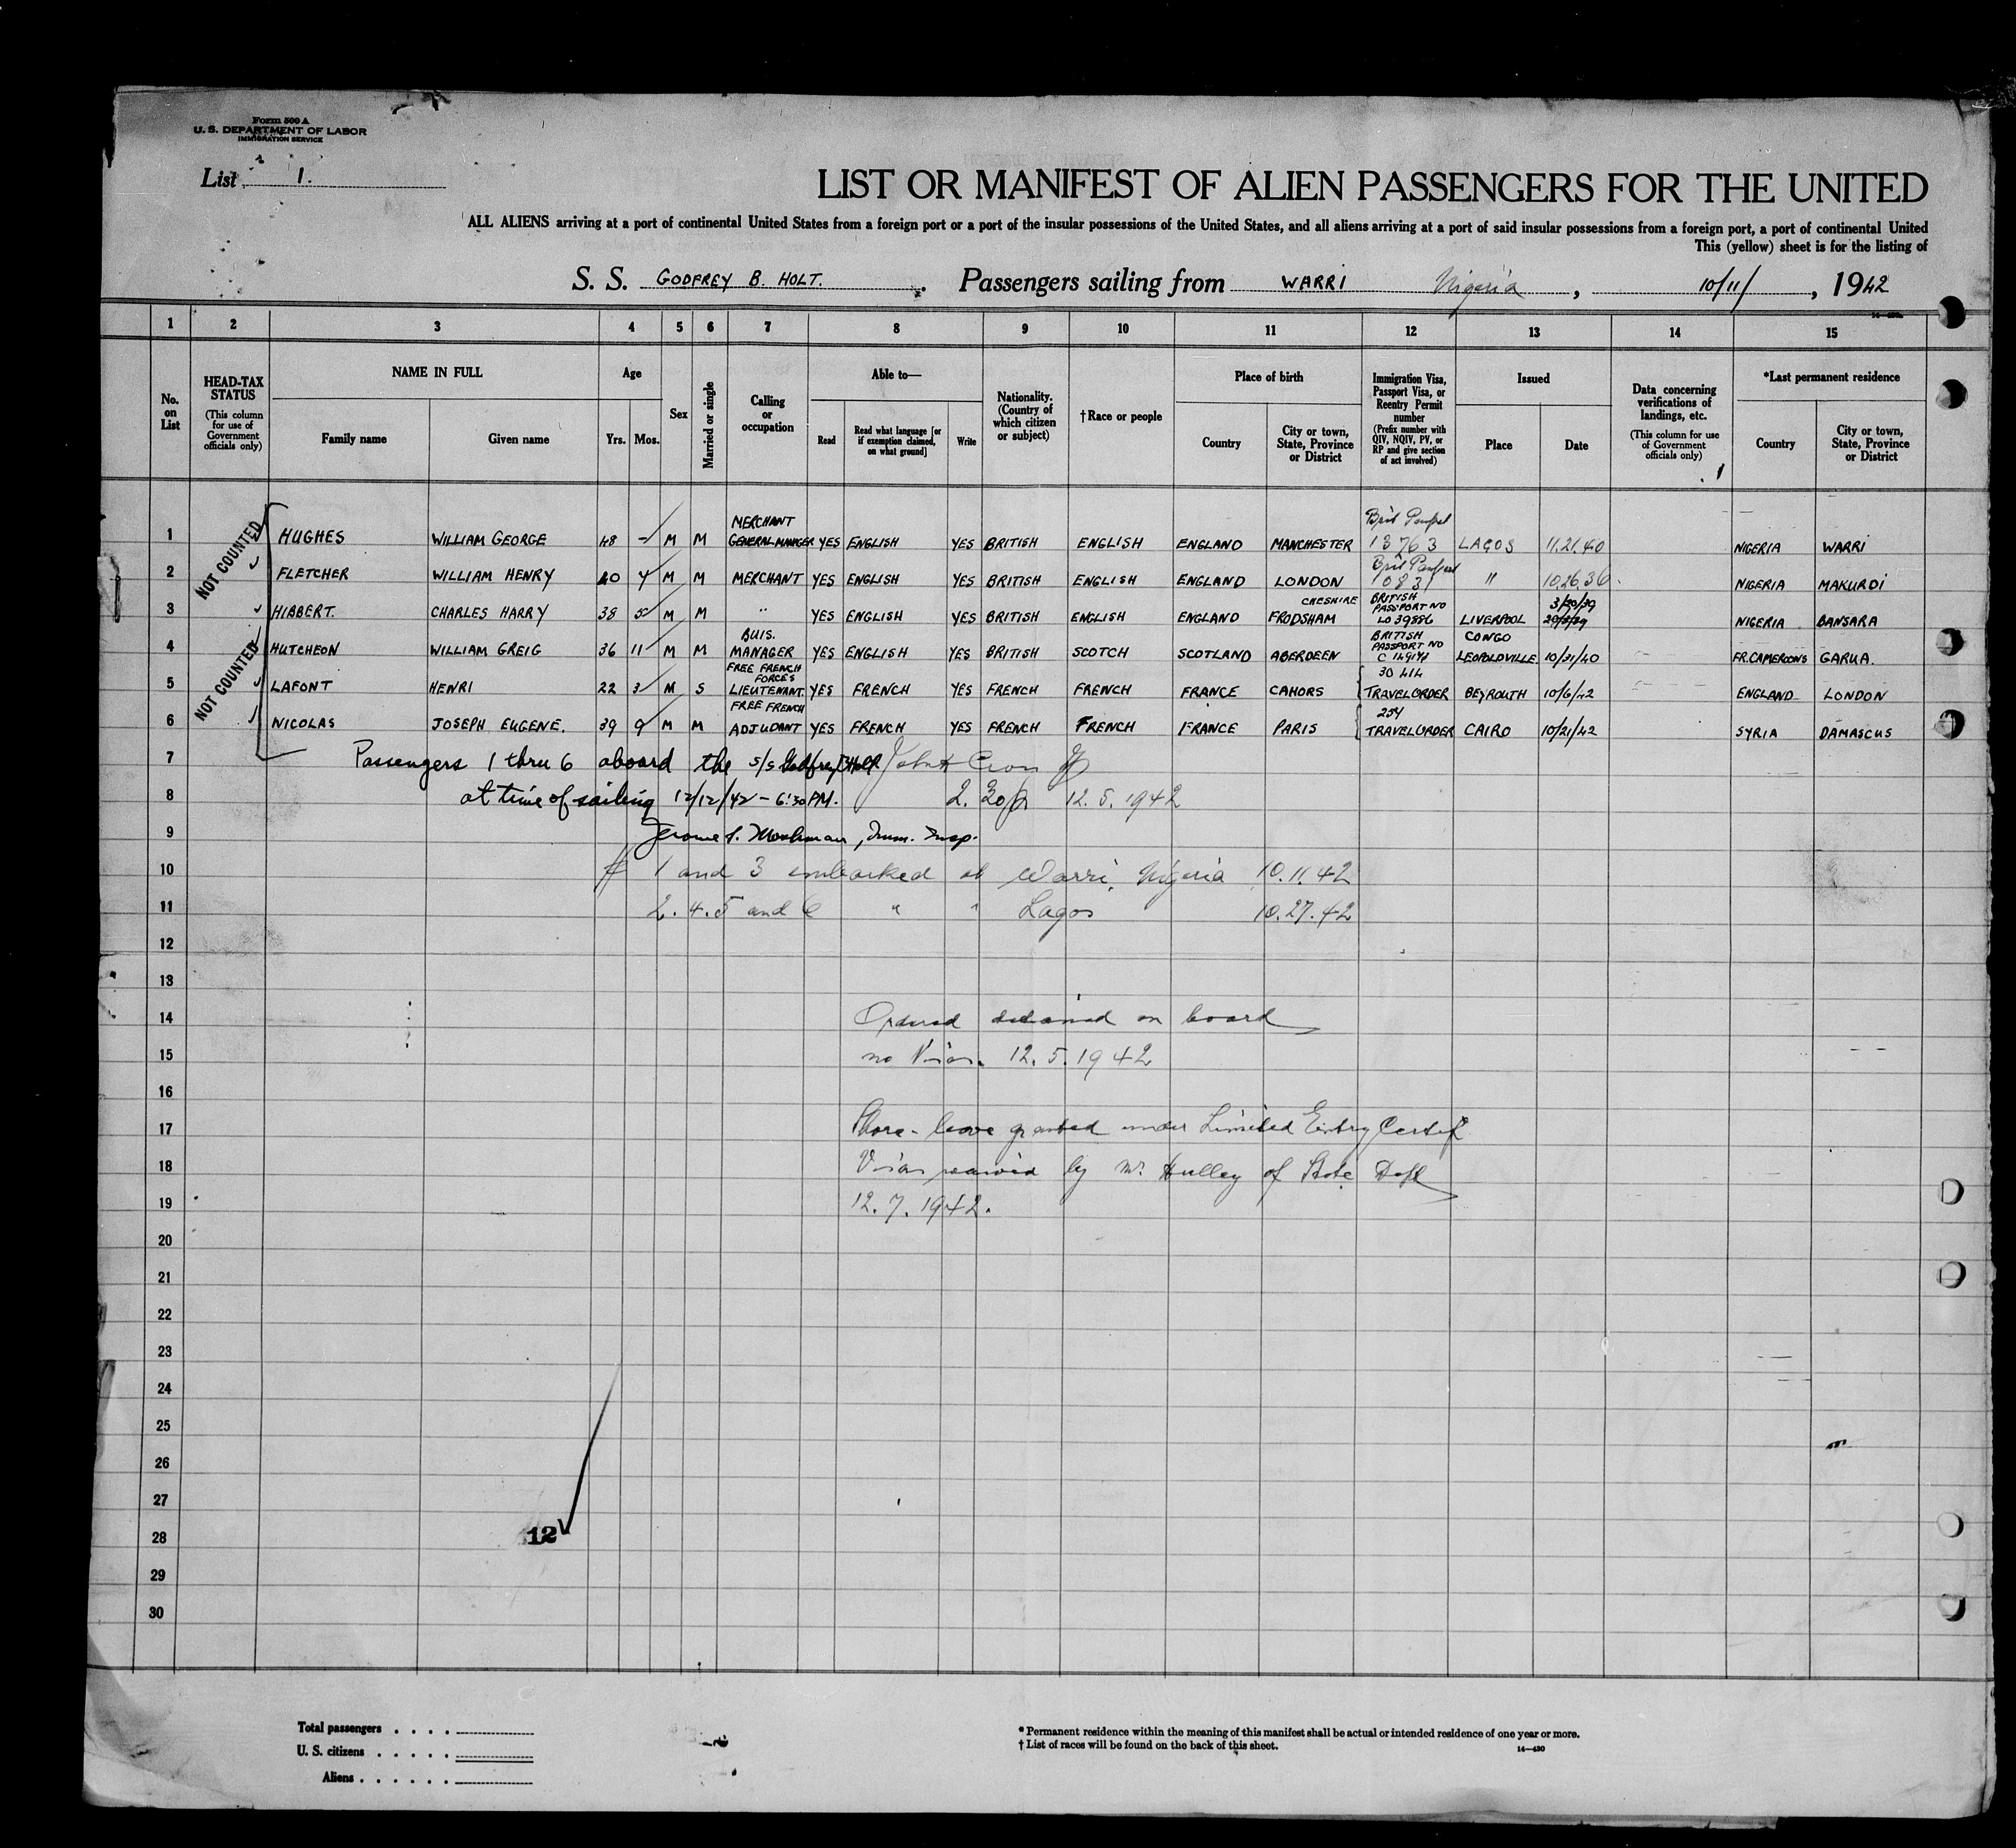 Form 500 A
U. S. DEPARTMENT OF LABOR
IMMIGRATION SERVICE
List 1.
LIST OR MANIFEST OF ALIEN PASSENGERS FOR THE UNITED
ALL ALIENS arriving at a port of continental United States from a foreign port or a port of the insular possessions of the United States, and all aliens arriving at a port of said insular possessions from a foreign port, a port of continental United
This (yellow) sheet is for the listing of
S. S. GODFREY B. HOLT. Passengers sailing from WARRI Nigeria, 10/11/, 1942
1 2 3 4 5 6 7 8 9 10 11 12 13 14 15
No. on List
HEAD-TAX STATUS (This column for use of Government officials only)
NAME IN FULL
Family name
Given name
Age
Yrs. Mos.
Sex
Married or single
Calling or occupation
Able to—
Read
Read what language [or if exemption claimed, on what ground]
Write
Nationality. (Country of which citizen or subject)
†Race or people
Place of birth
Country
City or town, State, Province or District
Immigration Visa, Passport Visa, or Reentry Permit number (Prefix number with QIV, NQIV, PV, or RP and give section of act involved)
Issued
Place
Date
Data concerning verifications of landings, etc. (This column for use of Government officials only)
*Last permanent residence
Country
City or town, State, Province or District
NOT COUNTED
NOT COUNTED
1 HUGHES WILLIAM GEORGE 48 – M M MERCHANT GENERAL MANAGER YES ENGLISH YES BRITISH ENGLISH ENGLAND MANCHESTER 13763 LAGOS 11.21.40 NIGERIA WARRI
2 FLETCHER WILLIAM HENRY 40 4 M M MERCHANT YES ENGLISH YES BRITISH ENGLISH ENGLAND LONDON 10831 " 10.26.36 NIGERIA MAKURDI
3 HIBBERT. CHARLES HARRY 38 5 M M " YES ENGLISH YES BRITISH ENGLISH ENGLAND CHESHIRE FRODSHAM BRITISH PASSPORT NO LO 39886 LIVERPOOL 3/20/39 20/3/39 NIGERIA BANSARA
4 HUTCHEON WILLIAM GREIG 36 11 M M BUIS. MANAGER YES ENGLISH YES BRITISH SCOTCH SCOTLAND ABERDEEN BRITISH PASSPORT NO CONGO LEOPOLDVILLE 10/21/40 FR. CAMEROONS GARUA.
5 LAFONT HENRI 22 3 M S FREE FRENCH FORCES LIEUTENANT YES FRENCH YES FRENCH FRENCH FRANCE CAHORS 30 414 TRAVEL ORDER BEYROUTH 10/6/42 ENGLAND LONDON
6 NICOLAS JOSEPH EUGENE. 39 9 M M FREE FRENCH ADJUDANT YES FRENCH YES FRENCH FRENCH FRANCE PARIS 254 TRAVEL ORDER CAIRO 10/21/42 SYRIA DAMASCUS
7 Passengers 1 thru 6 aboard the s/s Godfrey B Holt
8 at time of sailing 12/12/42 – 6:30 PM. 2.30 12.5.1942
9 Jerome Imm. Insp.
10 # 1 and 3 embarked at Warri, Nigeria 10.11.42
11 2.4.5 and 6 " " Lagos 10.27.42
12
13
14 Ordered detained on board
15 no Visas. 12.5.1942
16
17 Shore-leave granted under Limited Entry Certif
18 Visas waived by Mr Hulley of State Dept
19 12.7.1942.
20
21
22
23
24
25
26
27
28 12
29
30
Total passengers . . . .
U. S. citizens . . . . .
Aliens . . . . . .
* Permanent residence within the meaning of this manifest shall be actual or intended residence of one year or more.
† List of races will be found on the back of this sheet.
14—430